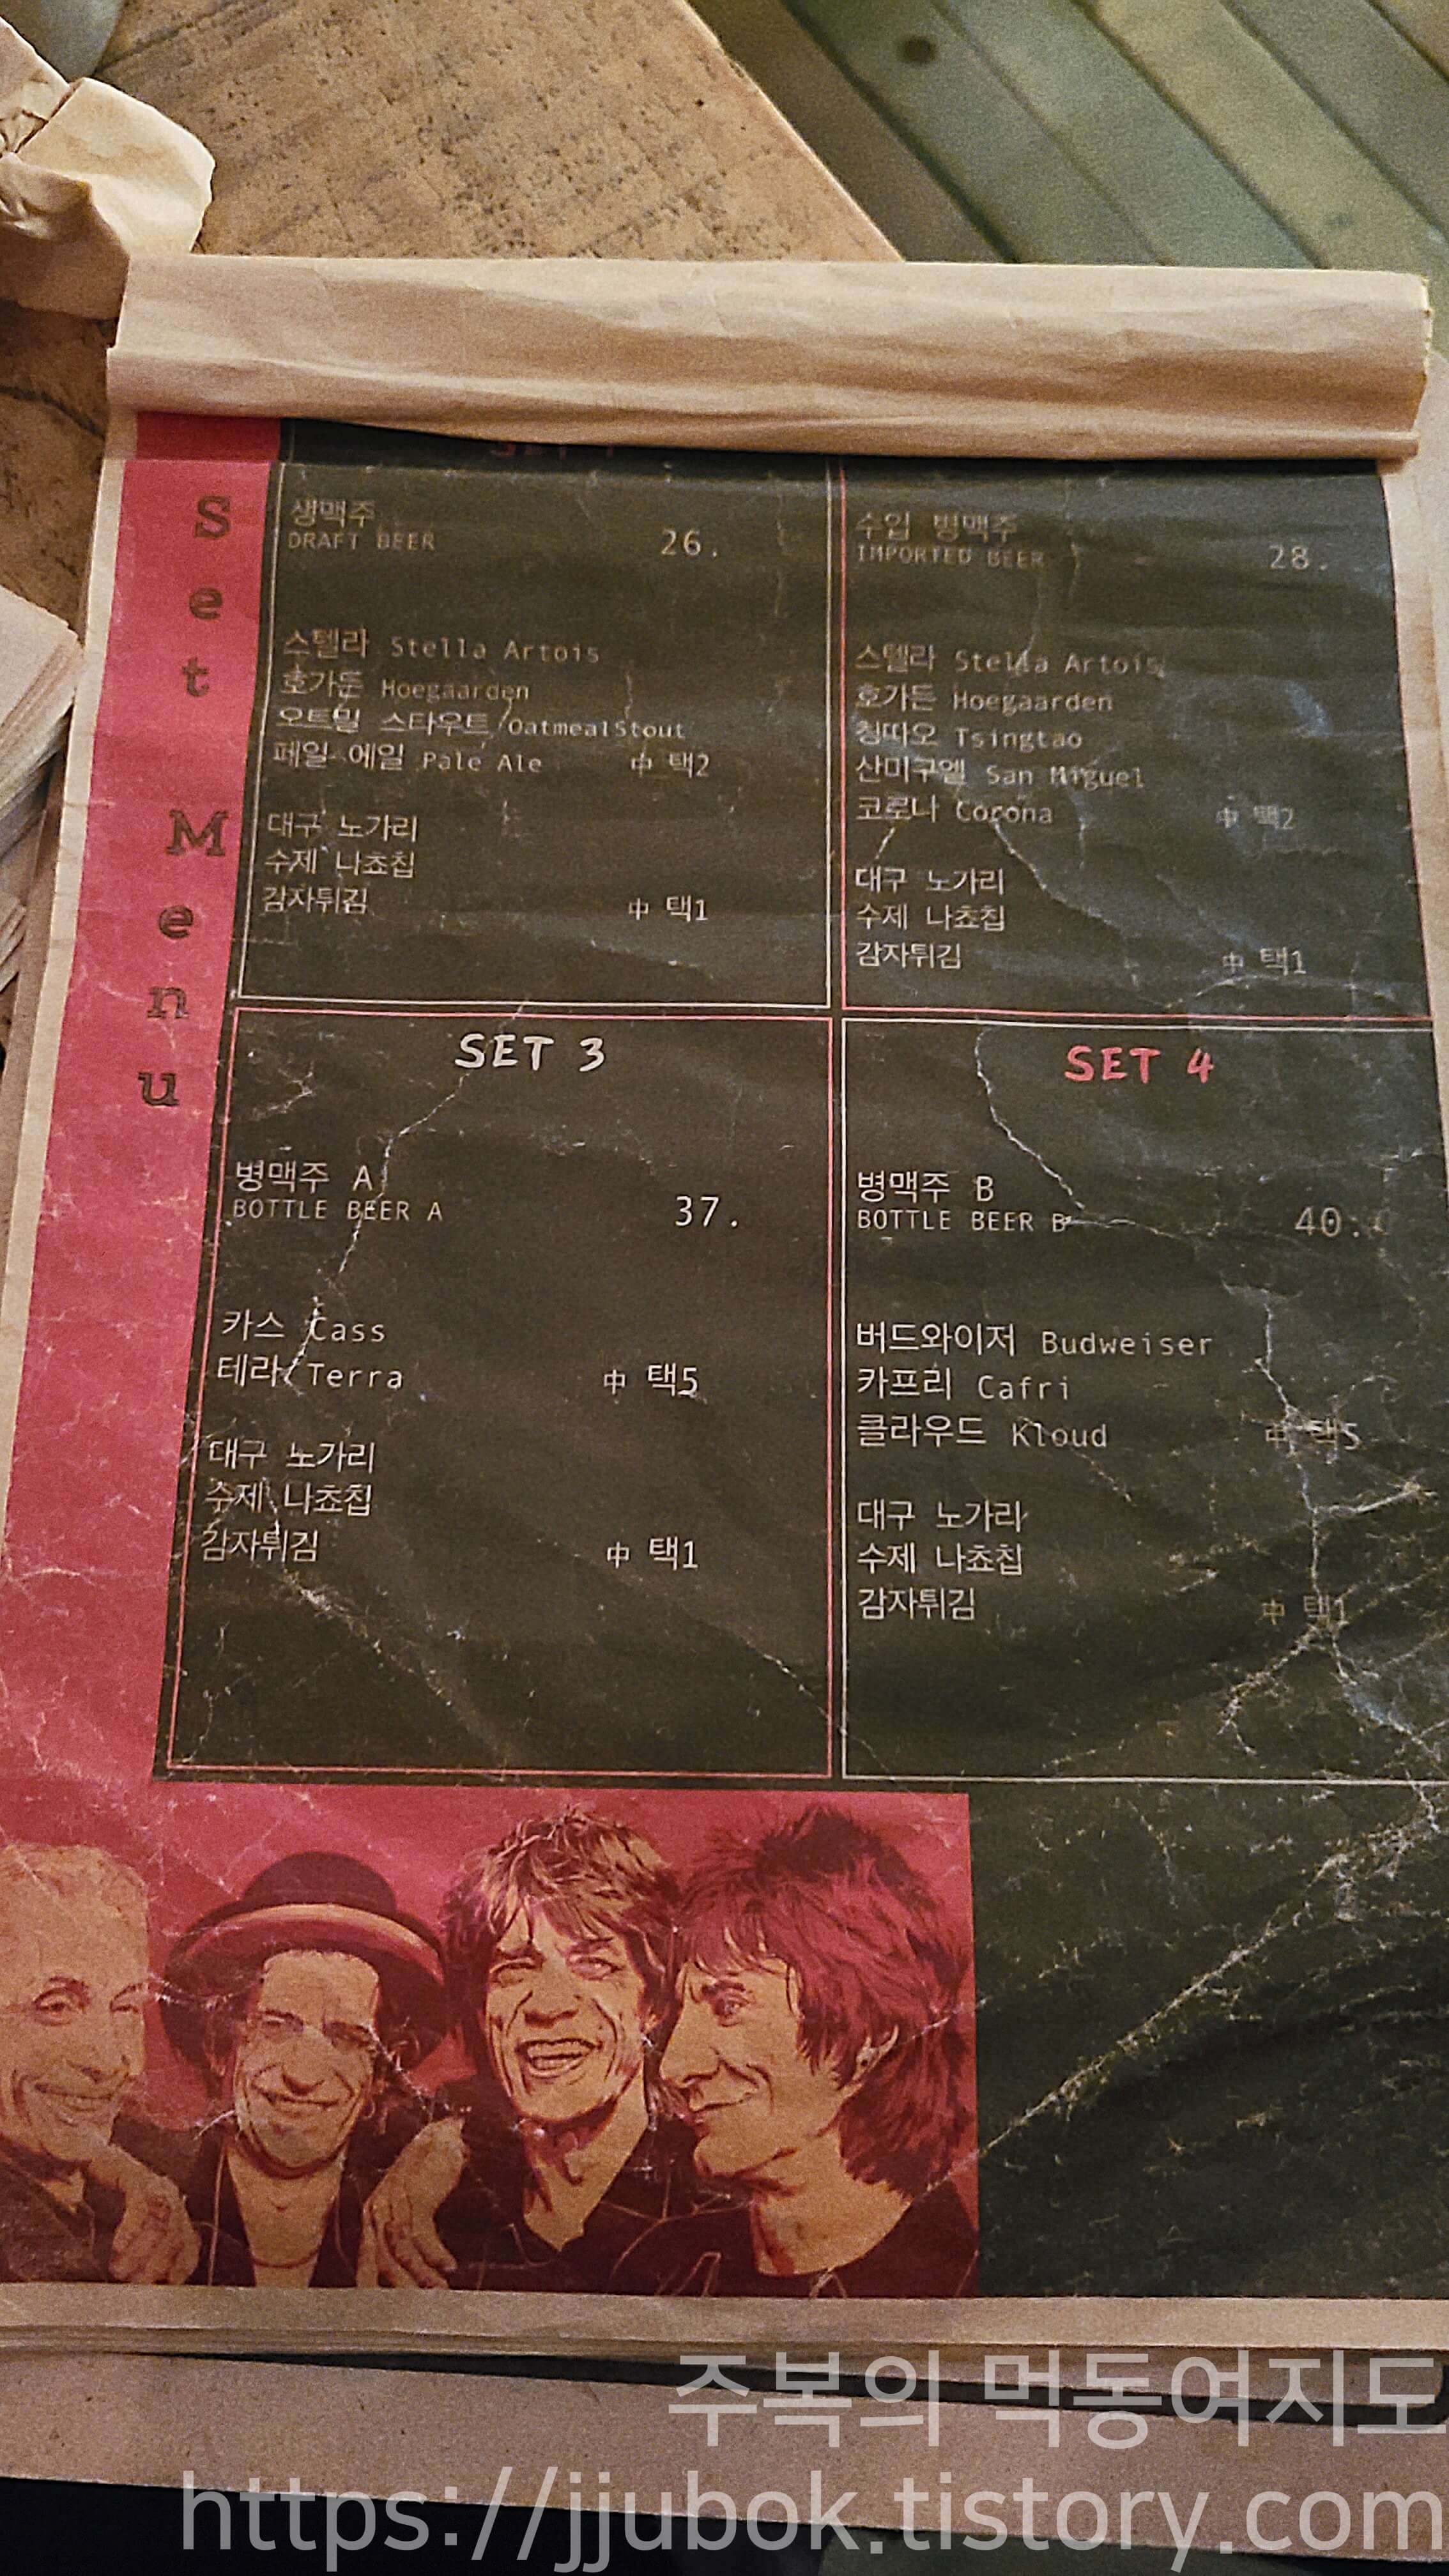 Set Menu
SET 1
생맥주
DRAFT BEER 26.
스텔라 Stella Artois
호가든 Hoegaarden
오트밀 스타우트 OatmealStout
페일 에일 Pale Ale 中 택2
대구 노가리
수제 나쵸칩
감자튀김 中 택1
수입 병맥주
IMPORTED BEER 28.
스텔라 Stella Artois
호가든 Hoegaarden
칭따오 Tsingtao
산미구엘 San Miguel
코로나 Corona 中 택2
대구 노가리
수제 나쵸칩
감자튀김 中 택1
SET 3
병맥주 A
BOTTLE BEER A 37.
카스 Cass
테라 Terra 中 택5
대구 노가리
수제 나쵸칩
감자튀김 中 택1
SET 4
병맥주 B
BOTTLE BEER B 40.
버드와이저 Budweiser
카프리 Cafri
클라우드 Kloud 中 택5
대구 노가리
수제 나쵸칩
감자튀김 中 택1
주복의 먹동여지도
https://jjubok.tistory.com